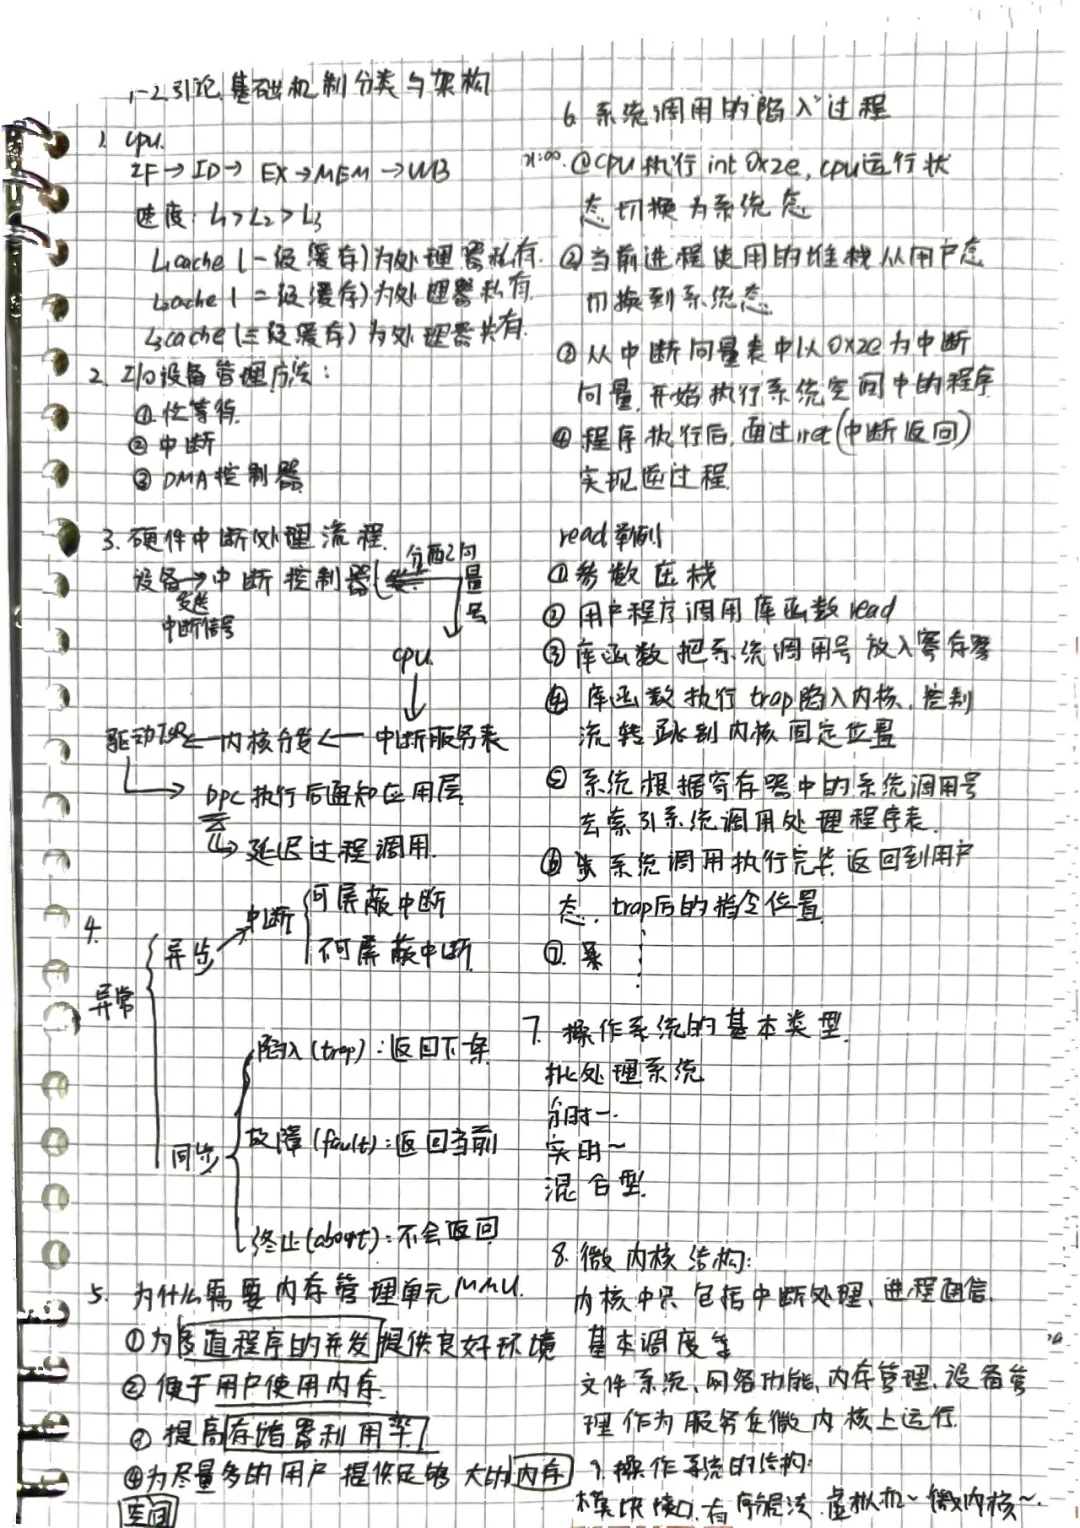 1-2引论.基础机制分类与架构
1. cpu.
IF→ID→EX→MEM→WB
速度: L1>L2>L3
L1cache(一级缓存)为处理器私有.
L2cache(二级缓存)为处理器私有.
L3cache(三级缓存)为处理器共有.
2. I/O设备管理方法:
①忙等待.
②中断
③DMA控制器
3.硬件中断处理流程.
设备→中断控制器
发送
中断信号
分配向
量
号
cpu.
驱动ISR←内核分发←中断服务表
DPC执行后通知应用层
延迟过程调用.
4.
异常
异步
中断
可屏蔽中断
不可屏蔽中断
同步
陷入(trap):返回下条
故障(fault):返回当前
终止(abort):不会返回
5. 为什么需要内存管理单元MMU.
①为多道程序的并发提供良好环境
②便于用户使用内存.
③提高存储器利用率
④为尽量多的用户提供足够大的内存
空间
6.系统调用的"陷入"过程
①cpu执行int 0x2e,cpu运行状
态切换为系统态
②当前进程使用的堆栈从用户态
切换到系统态.
③从中断向量表中以0x2e为中断
向量,开始执行系统空间中的程序
④程序执行后,通过iret(中断返回)
实现逆过程.
read举例
①参数压栈
②用户程序调用库函数read
③库函数把系统调用号放入寄存器
④库函数执行trap陷入内核,控制
流转跳到内核固定位置
⑤系统根据寄存器中的系统调用号
去索引系统调用处理程序表.
⑥系统调用执行完毕返回到用户
态,trap后的指令位置
⑦.
7.操作系统的基本类型.
批处理系统
分时~
实时~
混合型.
8.微内核结构:
内核中只包括中断处理、进程通信.
基本调度等
文件系统、网络功能、内存管理、设备管
理作为服务在微内核上运行.
9.操作系统的结构:
模块接口.有序层次.虚拟机~微内核~.